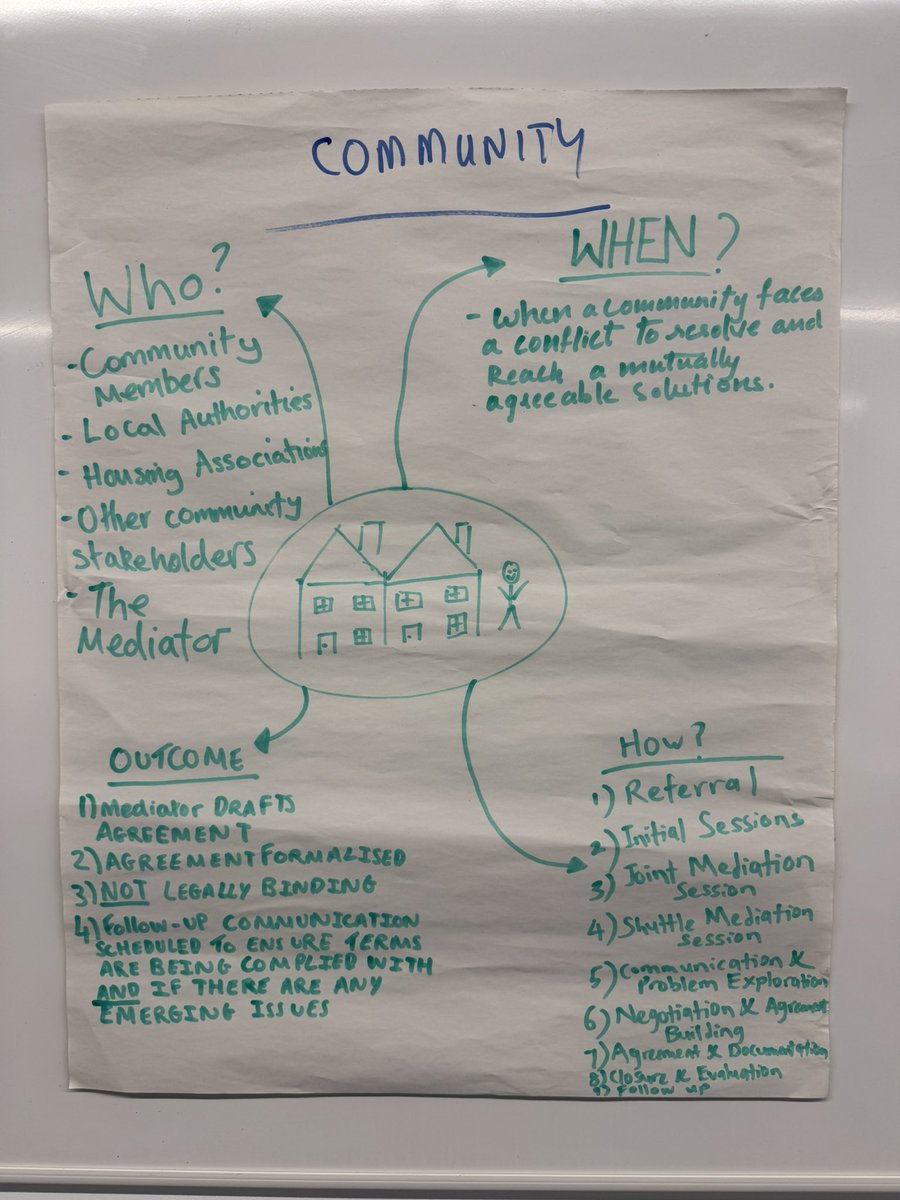 COMMUNITY
Who?
- Community
Members
- Local Authorities
- Housing Associations
- Other community
stakeholders
- The
Mediator
WHEN?
- When a community faces
a conflict to resolve and
Reach a mutually
agreeable solutions.
OUTCOME
1) Mediator DRAFTS
AGREEMENT
2) AGREEMENT FORMALISED
3) NOT LEGALLY BINDING
4) Follow-UP COMMUNICATION
SCHEDULED TO ENSURE TERMS
ARE BEING COMPLIED WITH
AND IF THERE ARE ANY
EMERGING ISSUES
How?
1) Referral
2) Initial Sessions
3) Joint Mediation
Session
4) Shuttle Mediation
Session
5) Communication &
Problem Exploration
6) Negotiation & Agreement
Building
7) Agreement & Documentation
8) Closure & Evaluation
9) Follow up